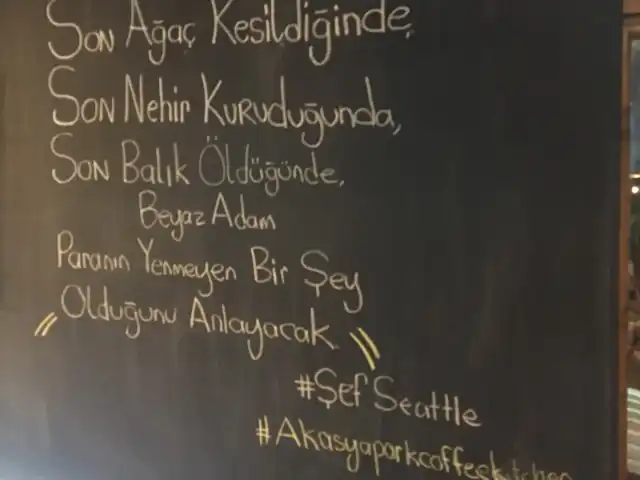 Son Ağaç Kesildiğinde,
Son Nehir Kuruduğunda,
Son Balık Öldüğünde,
Beyaz Adam
Paranın Yenmeyen Bir Şey
Olduğunu Anlayacak
#Şef Seattle
#Akasyaparkcoffeekitchen